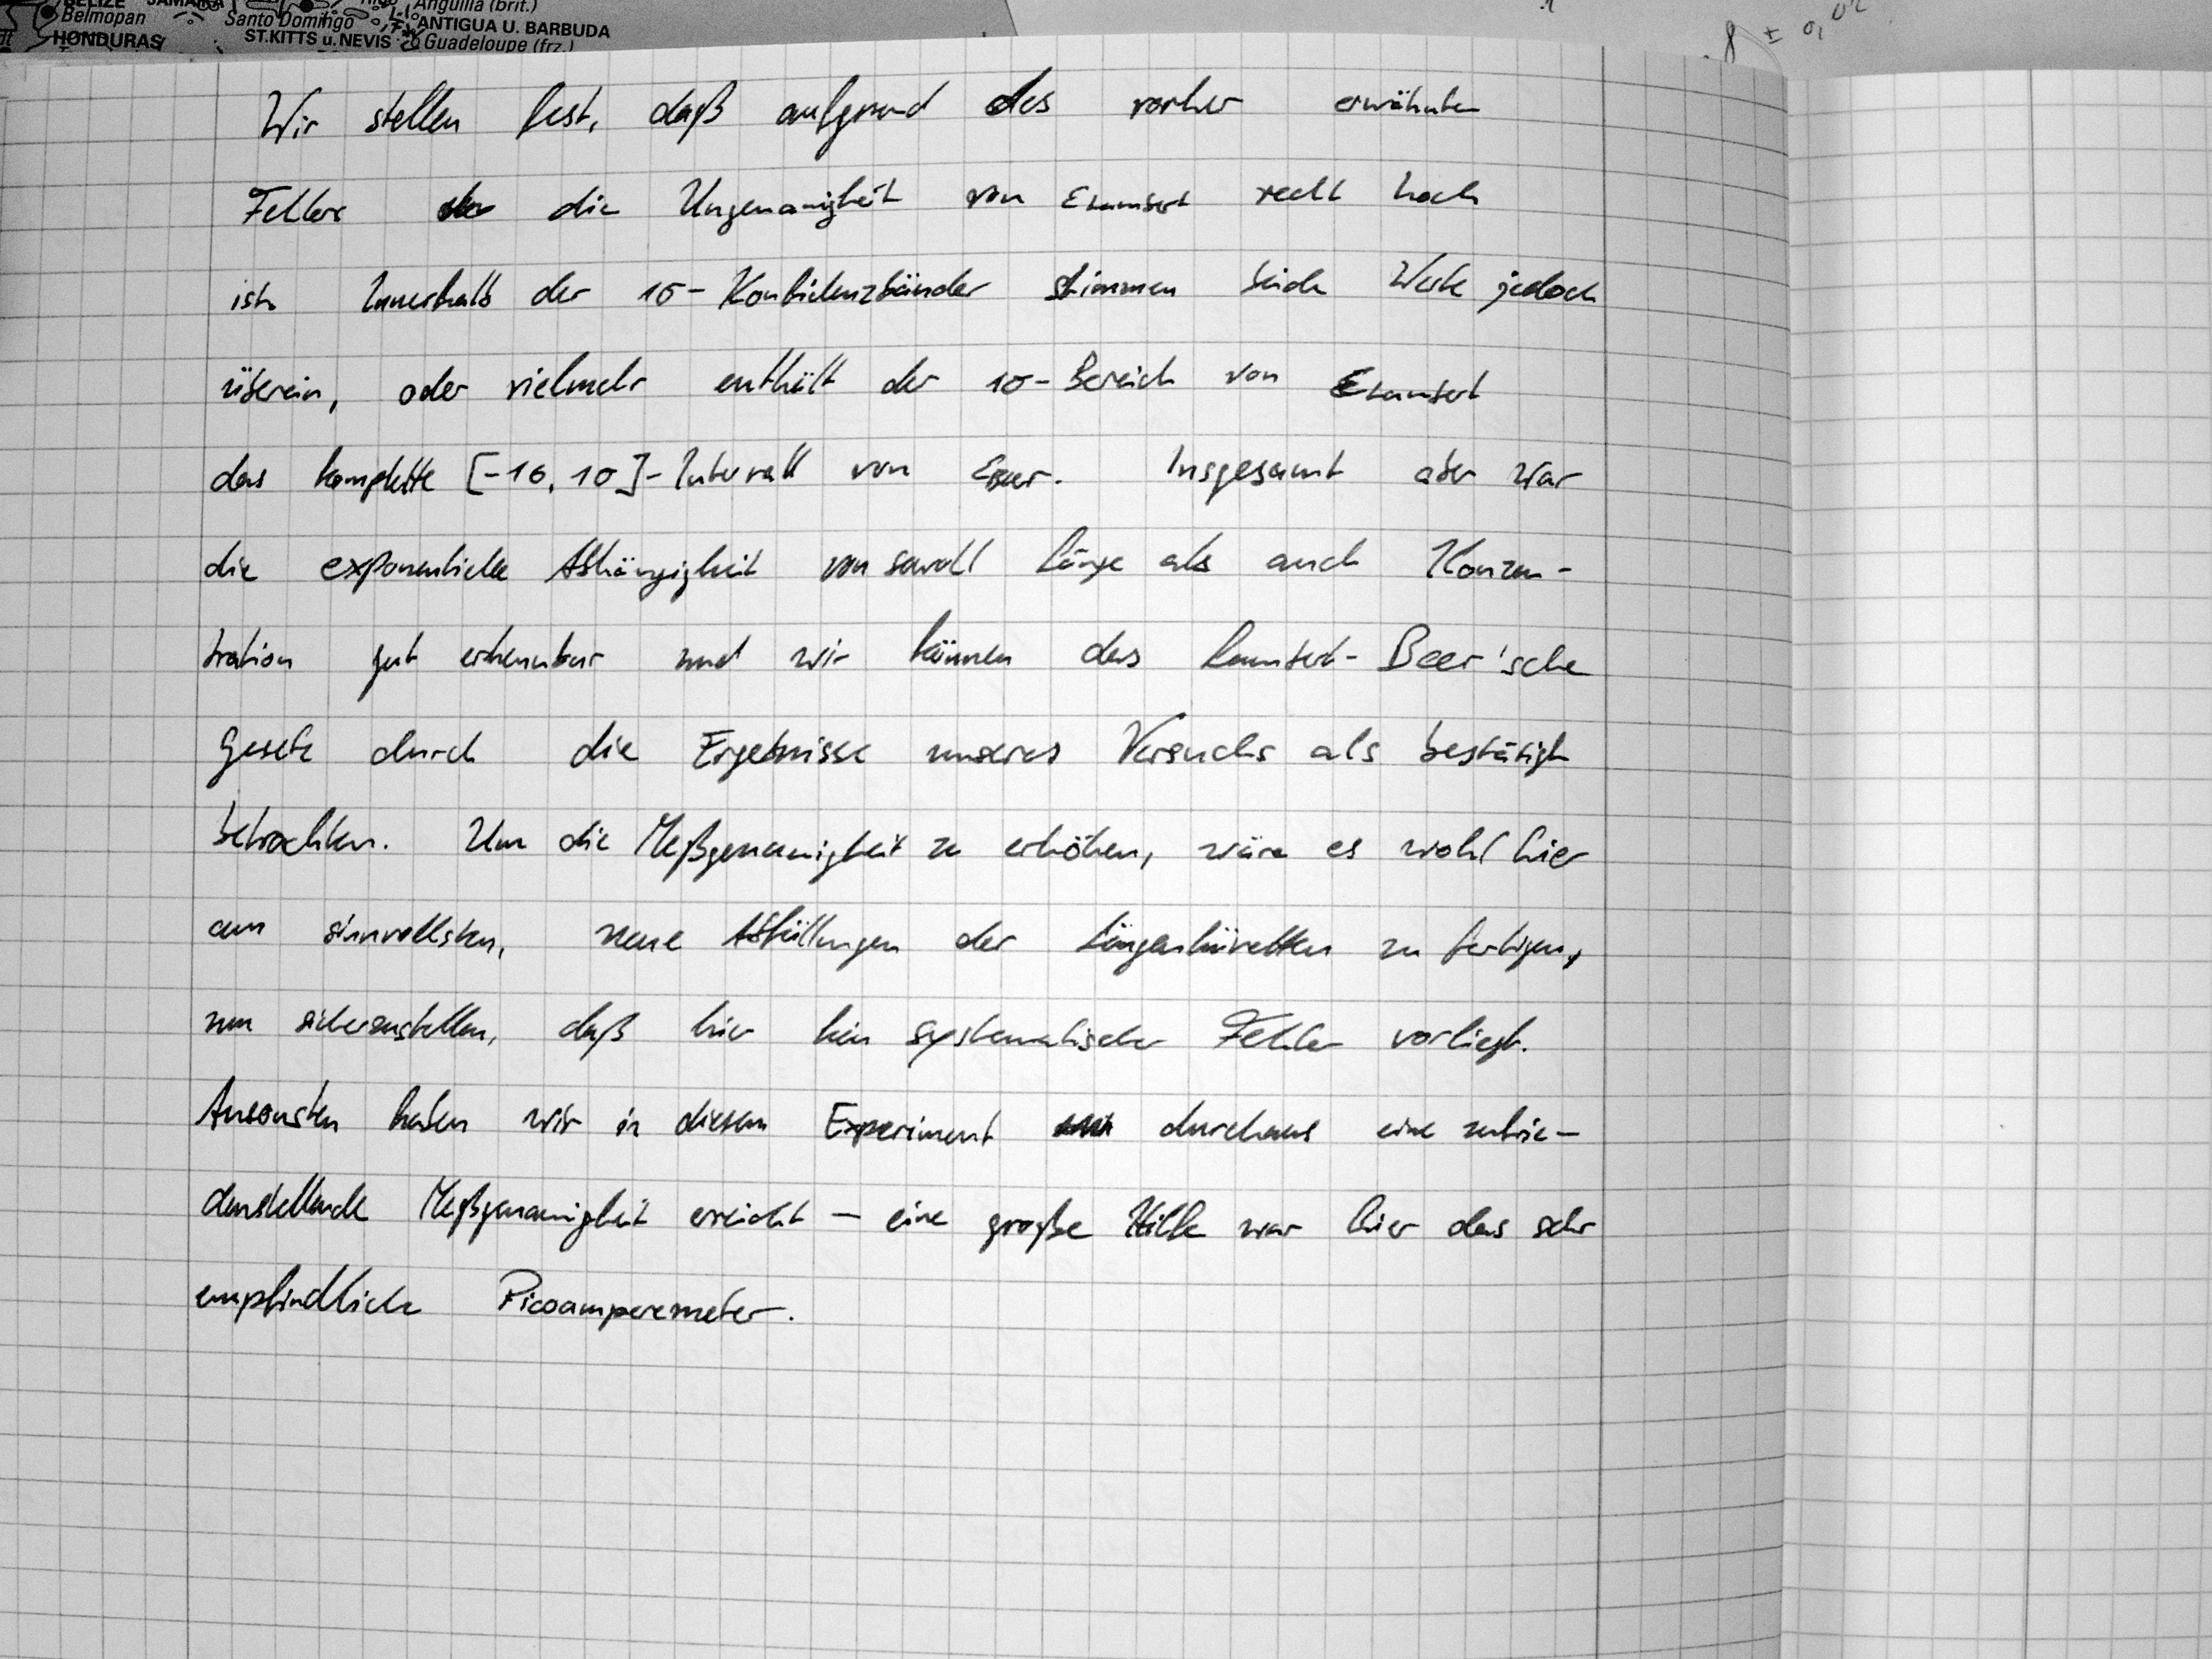 BELIZE JAMAIKA
Belmopan
HONDURAS
Santo Domingo
Anguilla (brit.)
ANTIGUA U. BARBUDA
ST.KITTS u. NEVIS
Guadeloupe (frz.)
8 ± 0,02
Wir stellen fest, daß aufgrund des vorher erwähnten
Fehlers die Ungenauigkeit von ε Lambert recht hoch
ist. Innerhalb der 1σ-Konfidenzbänder stimmen beide Werte jedoch
überein, oder vielmehr enthält der 1σ-Bereich von ε Lambert
das komplette [-1σ, 1σ]-Intervall von ε Beer. Insgesamt aber war
die exponentielle Abhängigkeit von sowohl Länge als auch Konzen-
tration gut erkennbar und wir können das Lambert-Beer'sche
Gesetz durch die Ergebnisse unseres Versuchs als bestätigt
betrachten. Um die Meßgenauigkeit zu erhöhen, wäre es wohl hier
am sinnvollsten, neue Abfüllungen der Längenküvetten zu fertigen,
um sicherzustellen, daß hier kein systematischer Fehler vorliegt.
Ansonsten haben wir in diesem Experiment durchaus eine zufrie-
denstellende Meßgenauigkeit erreicht – eine große Hilfe war hier das sehr
empfindliche Picoamperemeter.